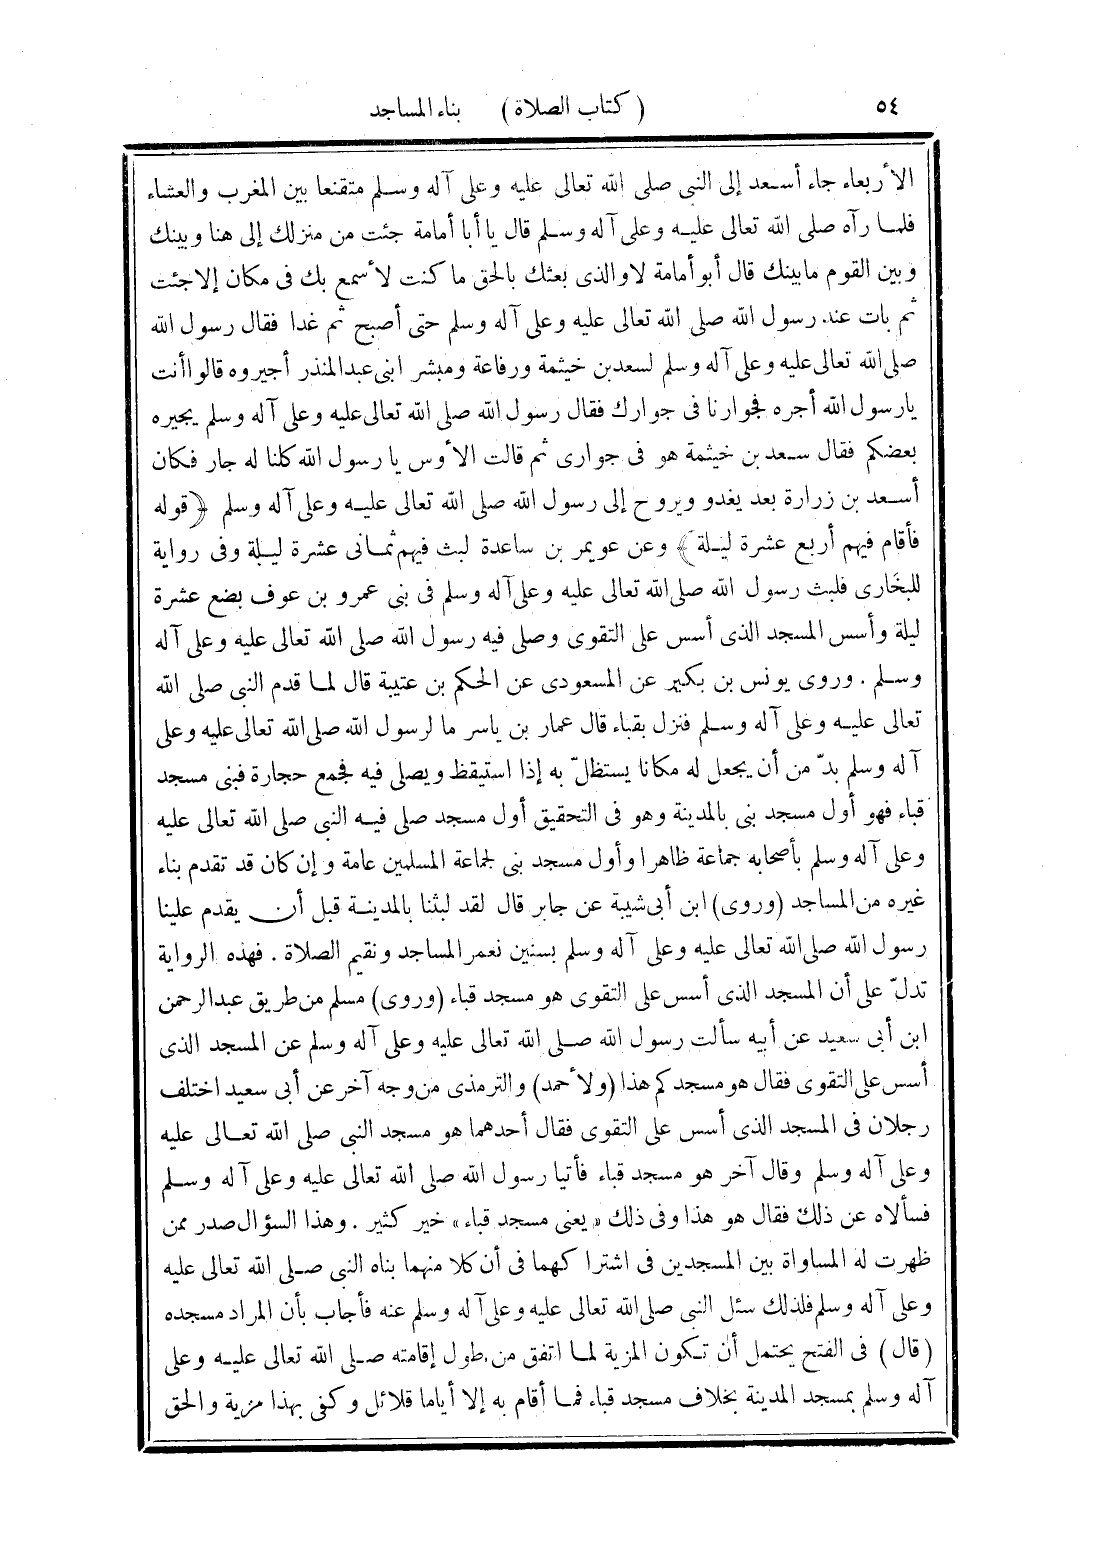 ٥٤ ( كتاب الصلاة ) بناء المساجد
الأربعاء جاء أسعد إلى النبى صلى الله تعالى عليه وعلى آله وسلم متقنعا بين المغرب والعشاء
فلما رآه صلى الله تعالى عليه وعلى آله وسلم قال يا أبا أمامة جئت من منزلك إلى هنا وبينك
وبين القوم مابينك قال أبو أمامة لاوالذى بعثك بالحق ما كنت لأسمع بك فى مكان إلاجئت
ثم بات عند رسول الله صلى الله تعالى عليه وعلى آله وسلم حتى أصبح ثم غدا فقال رسول الله
صلى الله تعالى عليه وعلى آله وسلم لسعد بن خيثمة ورفاعة ومبشر ابنى عبد المنذر أجيروه قالوا أنت
يارسول الله أجره فجوارنا فى جوارك فقال رسول الله صلى الله تعالى عليه وعلى آله وسلم يجيره
بعضكم فقال سعد بن خيثمة هو فى جوارى ثم قالت الأوس يا رسول الله كلنا له جار فكان
أسعد بن زرارة بعد يغدو ويروح إلى رسول الله صلى الله تعالى عليه وعلى آله وسلم ﴿قوله
فأقام فيهم أربع عشرة ليلة﴾ وعن عويمر بن ساعدة لبث فيهم ثمانى عشرة ليلة وفى رواية
للبخارى فلبث رسول الله صلى الله تعالى عليه وعلى آله وسلم فى بنى عمرو بن عوف بضع عشرة
ليلة وأسس المسجد الذى أسس على التقوى وصلى فيه رسول الله صلى الله تعالى عليه وعلى آله
وسلم . وروى يونس بن بكير عن المسعودى عن الحكم بن عتيبة قال لما قدم النبى صلى الله
تعالى عليه وعلى آله وسلم فنزل بقباء قال عمار بن ياسر ما لرسول الله صلى الله تعالى عليه وعلى
آله وسلم بدّ من أن يجعل له مكانا يستظلّ به إذا استيقظ ويصلى فيه فجمع حجارة فبنى مسجد
قباء فهو أول مسجد بنى بالمدينة وهو فى التحقيق أول مسجد صلى فيه النبى صلى الله تعالى عليه
وعلى آله وسلم بأصحابه جماعة ظاهرا وأول مسجد بنى لجماعة المسلمين عامة وإن كان قد تقدم بناء
غيره من المساجد (وروى) ابن أبى شيبة عن جابر قال لقد لبثنا بالمدينة قبل أن يقدم علينا
رسول الله صلى الله تعالى عليه وعلى آله وسلم بسنين نعمر المساجد ونقيم الصلاة . فهذه الرواية
تدلّ على أن المسجد الذى أسس على التقوى هو مسجد قباء (وروى) مسلم من طريق عبد الرحمن
ابن أبى سعيد عن أبيه سألت رسول الله صلى الله تعالى عليه وعلى آله وسلم عن المسجد الذى
أسس على التقوى فقال هو مسجدكم هذا (ولأحمد) والترمذى من وجه آخر عن أبى سعيد اختلف
رجلان فى المسجد الذى أسس على التقوى فقال أحدهما هو مسجد النبى صلى الله تعالى عليه
وعلى آله وسلم وقال آخر هو مسجد قباء فأتيا رسول الله صلى الله تعالى عليه وعلى آله وسلم
فسألاه عن ذلك فقال هو هذا وفى ذلك «يعنى مسجد قباء» خير كثير . وهذا السؤال صدر ممن
ظهرت له المساواة بين المسجدين فى اشتراكهما فى أن كلا منهما بناه النبى صلى الله تعالى عليه
وعلى آله وسلم فلذلك سئل النبى صلى الله تعالى عليه وعلى آله وسلم عنه فأجاب بأن المراد مسجده
(قال) فى الفتح يحتمل أن تكون المزية لما اتفق من طول إقامته صلى الله تعالى عليه وعلى
آله وسلم بمسجد المدينة بخلاف مسجد قباء فما أقام به إلا أياما قلائل وكفى بهذا مزية والحق